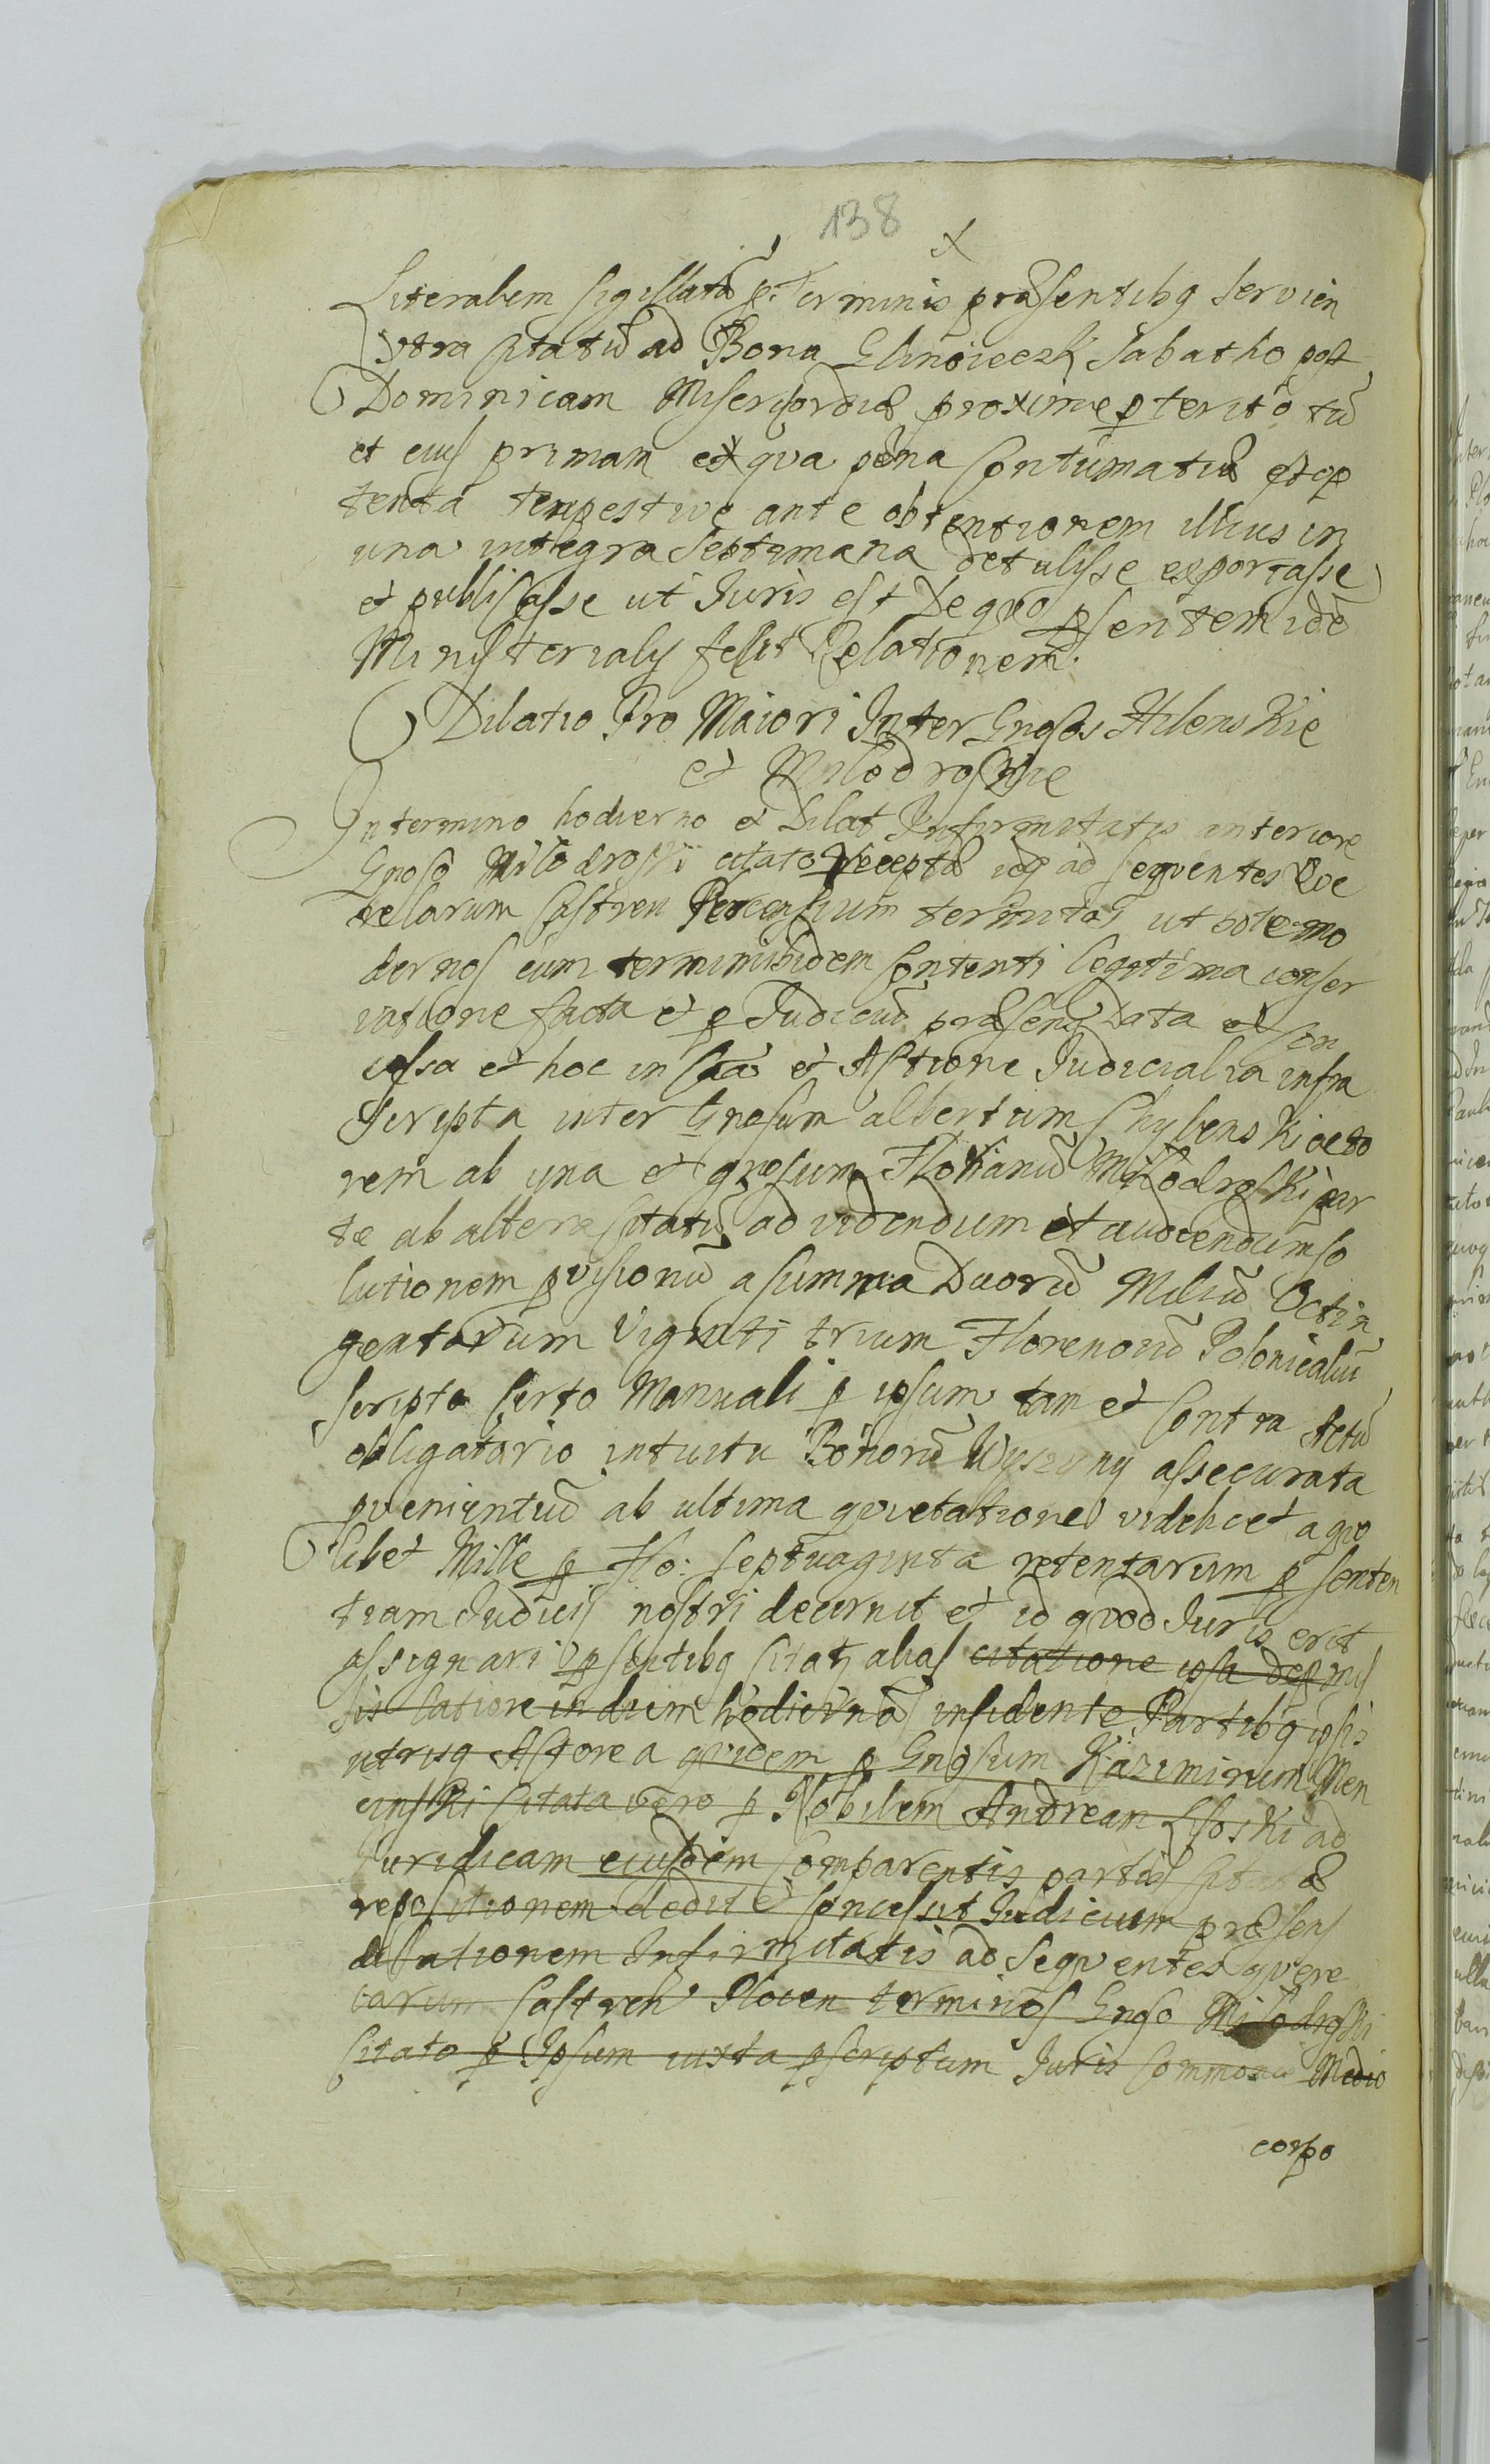 138
Literalem sigillatã p. Terminis præsentibq servien
Citra citatũ ad Bona Glinoieczk Sabatho post
Dominicam Misericordiæ proxime pterito tũ
et eius primam et qua pœna contumatiæ
tenta tempestive ante obtentionem illius in
una integra septimana detulisse exportasse
et publicasse ut Iuris est De quo psentem idẽ
Ministerialis fecit Relationem.
Dilatio Pro Maiori Inter Gnosos Hilenskie
et Milodroskie
In termino hodierno ex Dilat Infirmitatis anteriore
Gnoso Milodroski citato recepta ad sequentes Que
relarum Castren terminos ut pote mo
dernos cum terminis ibidem contenti legitima conser
vatione facta et p Iudiciũ præsens data et con
cessa et hoc in cãa et Actione Iudicialia infra
scripta inter Gnosum Albertum Chylenski acto
rem ab una et gnosum Florianũ Milodroski par
te ab altera citatũ ad videndum et audiendum so
lutionem pvisionũ a summa Duorũ Miliũ Octin
gentorum Viginti trium Florenorũ Polonicaliũ
scripto certo Manuali p ipsum tam et contra Actũ
obligatorio intuitu Bonorũ Wyszyny assecurata
pvenientiũ ab ultima quietatione videlicet a quo
libet Mille p Flo: septuaginta retentarum p senten
tiam Iudicis nostri decernit et id quod Iuris erit
assignari psentibq citat alias citatione
latiore in diem hodiernã incidente Partibq ipsis
utrisq Actorea quidem p Gnosum Kazimirum Men
cinski citata vero p Nobilem Andream ad
Iuridicam eiusdem comparentis partis citatæ
repositionem dedit et concessit Iudicium præsens
dilationem Infirmitatis ad sequentes quere
larum Castren Plocen terminos Gnso Milodroski
citato p Ipsum iuxta pscriptum Iuris communis Medio
corpo